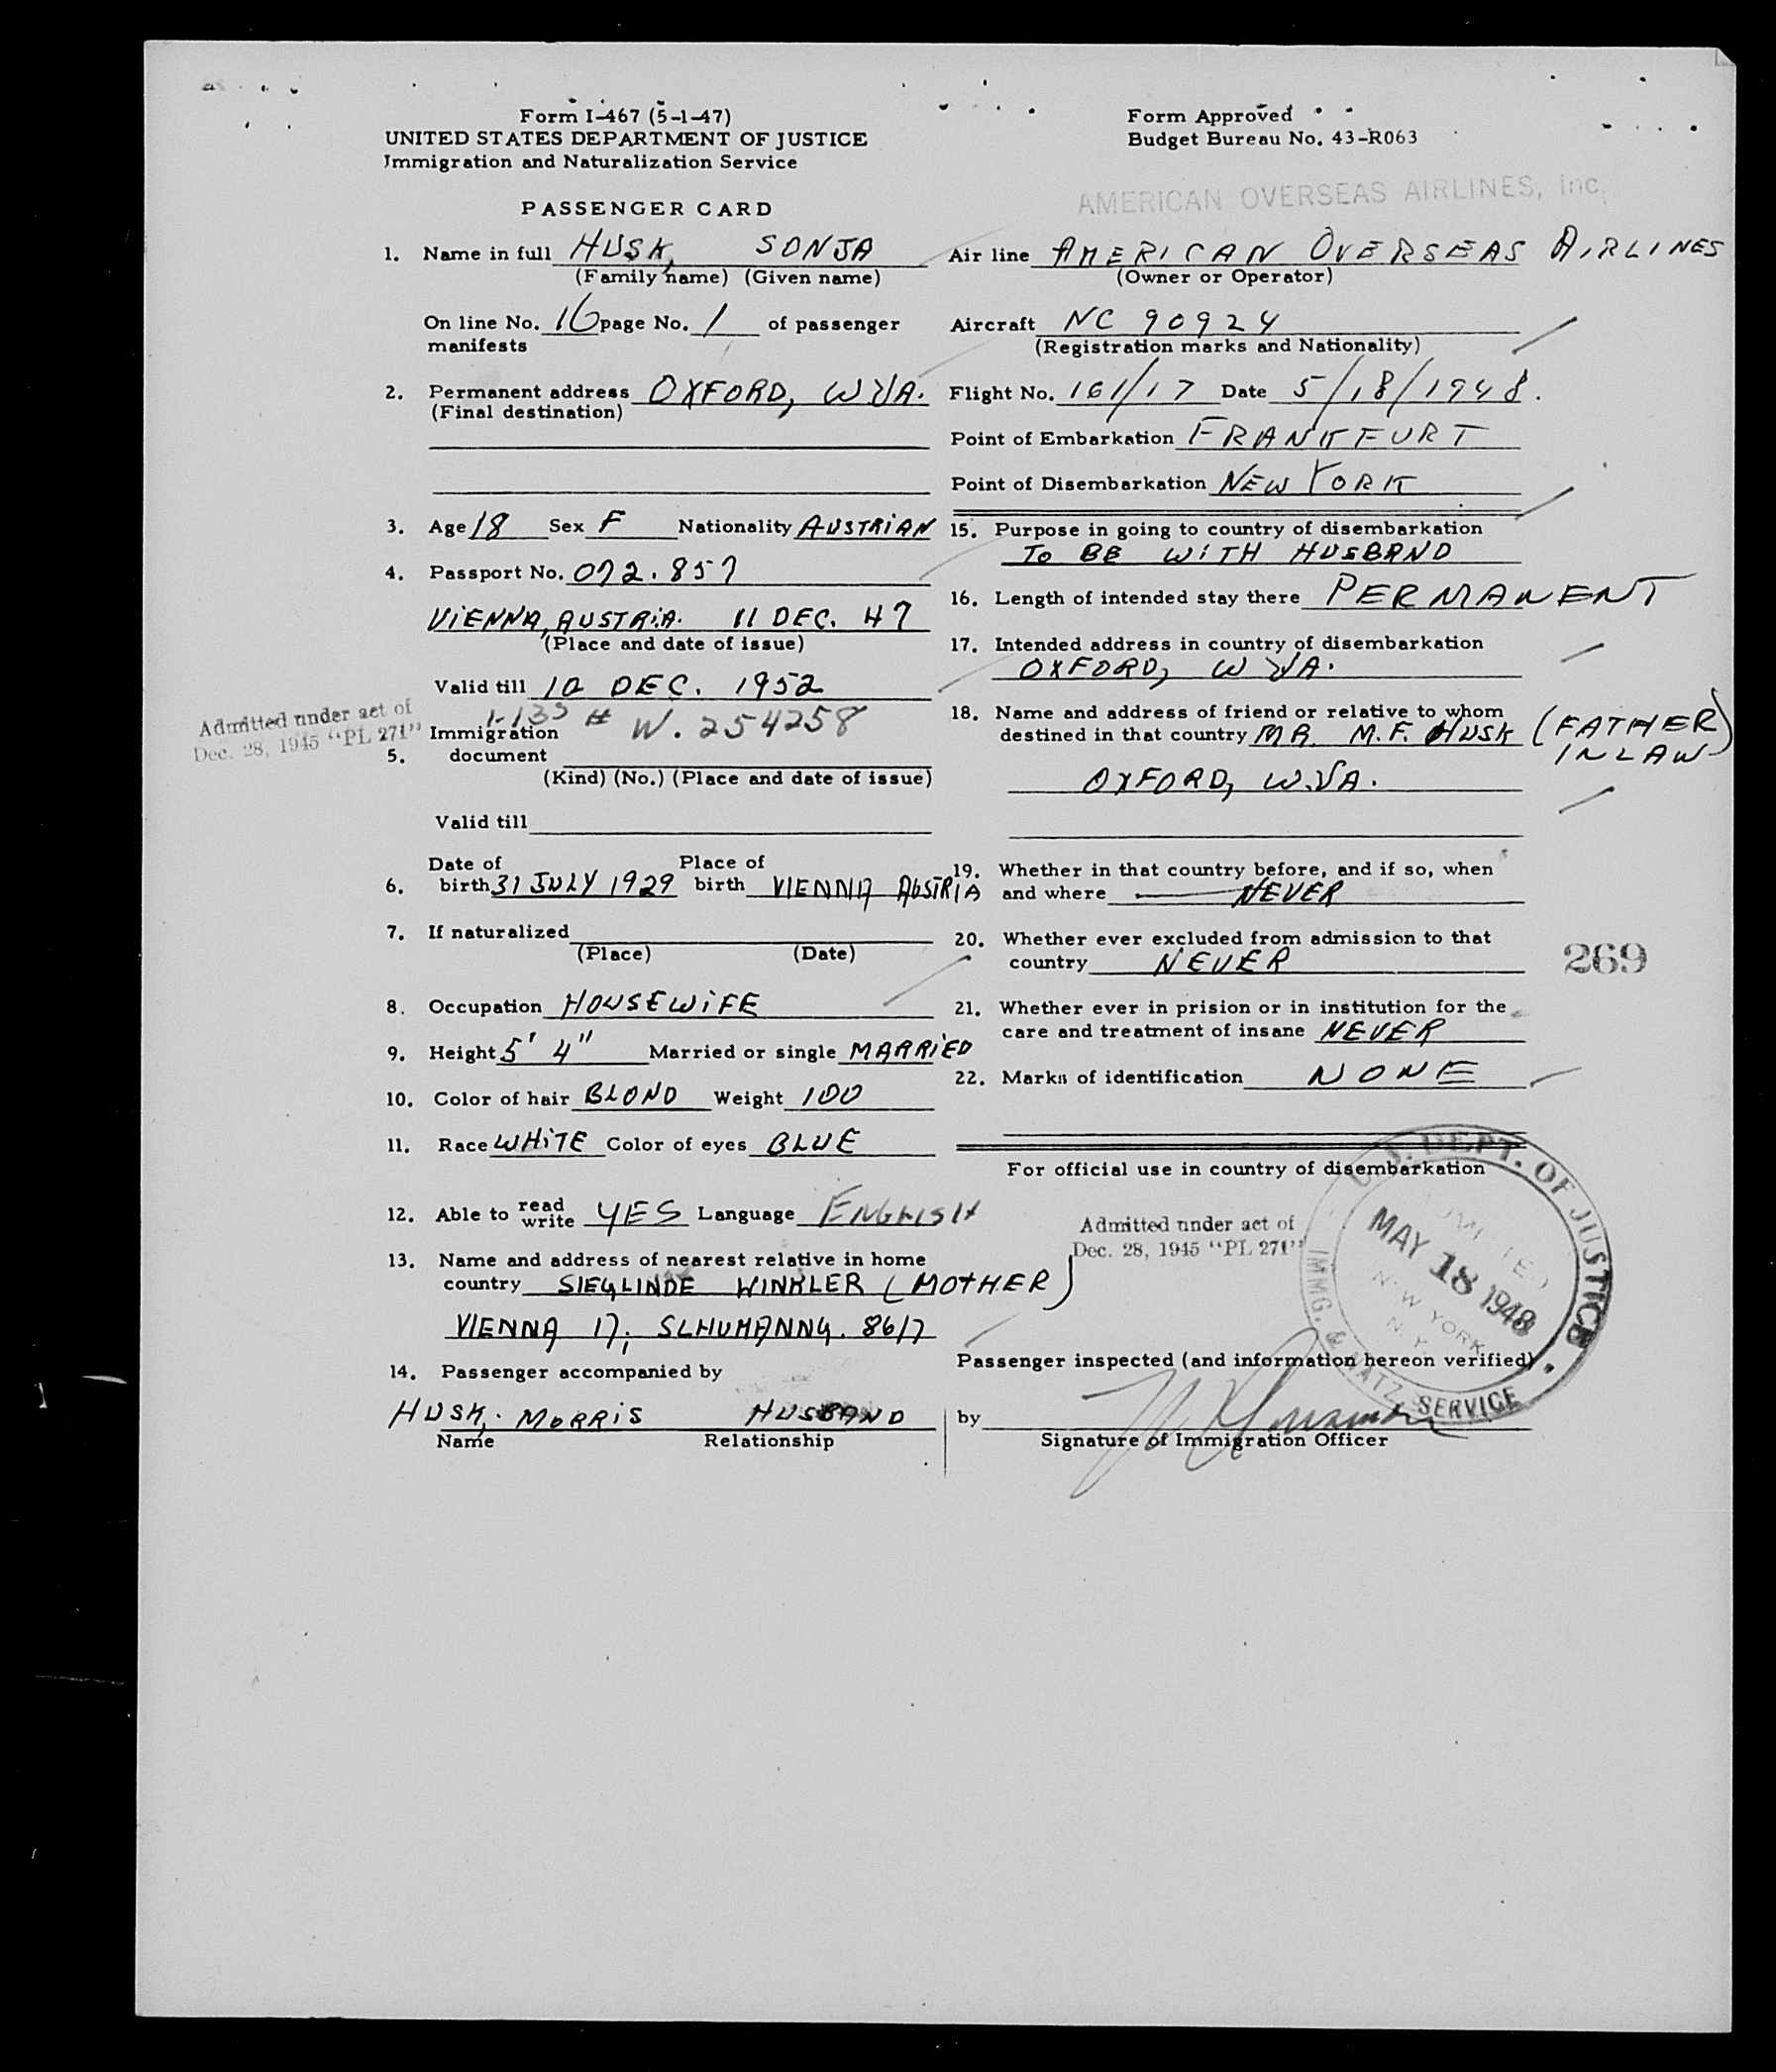 Form I-467 (5-1-47)
UNITED STATES DEPARTMENT OF JUSTICE
Immigration and Naturalization Service
PASSENGER CARD
Form Approved
Budget Bureau No. 43-R063
AMERICAN OVERSEAS AIRLINES, Inc.
1. Name in full HUSK, SONJA
(Family name) (Given name)
On line No. 16 page No. 1 of passenger
manifests
2. Permanent address OXFORD, W.VA.
(Final destination)
3. Age 18 Sex F Nationality AUSTRIAN
4. Passport No. 072.857
VIENNA, AUSTRIA. 11 DEC. 47
(Place and date of issue)
Valid till 10 DEC. 1952
Admitted under act of
Dec. 28, 1945 "PL 271"
I-135 # W. 254258
Immigration
5. document
(Kind) (No.) (Place and date of issue)
Valid till
Date of Place of
6. birth 31 JULY 1929 birth VIENNA AUSTRIA
7. If naturalized
(Place) (Date)
8. Occupation HOUSEWIFE
9. Height 5' 4" Married or single MARRIED
10. Color of hair BLOND Weight 100
11. Race WHITE Color of eyes BLUE
12. Able to read write YES Language ENGLISH
13. Name and address of nearest relative in home
country SIEGLINDE WINKLER (MOTHER)
VIENNA 17; SCHUMANNG. 86/7
14. Passenger accompanied by
HUSK, MORRIS HUSBAND
Name Relationship
Air line AMERICAN OVERSEAS AIRLINES
(Owner or Operator)
Aircraft NC 90924
(Registration marks and Nationality)
Flight No. 161/17 Date 5/18/1948.
Point of Embarkation FRANKFURT
Point of Disembarkation NEW YORK
15. Purpose in going to country of disembarkation
TO BE WITH HUSBAND
16. Length of intended stay there PERMANENT
17. Intended address in country of disembarkation
OXFORD, W VA.
18. Name and address of friend or relative to whom
destined in that country MR. M.F. HUSK (FATHER
IN LAW)
OXFORD, W.VA.
19. Whether in that country before, and if so, when
and where NEVER
20. Whether ever excluded from admission to that
country NEVER
269
21. Whether ever in prision or in institution for the
care and treatment of insane NEVER
22. Marks of identification NONE
For official use in country of disembarkation
Admitted under act of
Dec. 28, 1945 "PL 271"
U.S. DEPT. OF JUSTICE
IMMG. & NATZ. SERVICE
ADMITTED
MAY 18 1948
NEW YORK
N.Y.
Passenger inspected (and information hereon verified)
by
Signature of Immigration Officer